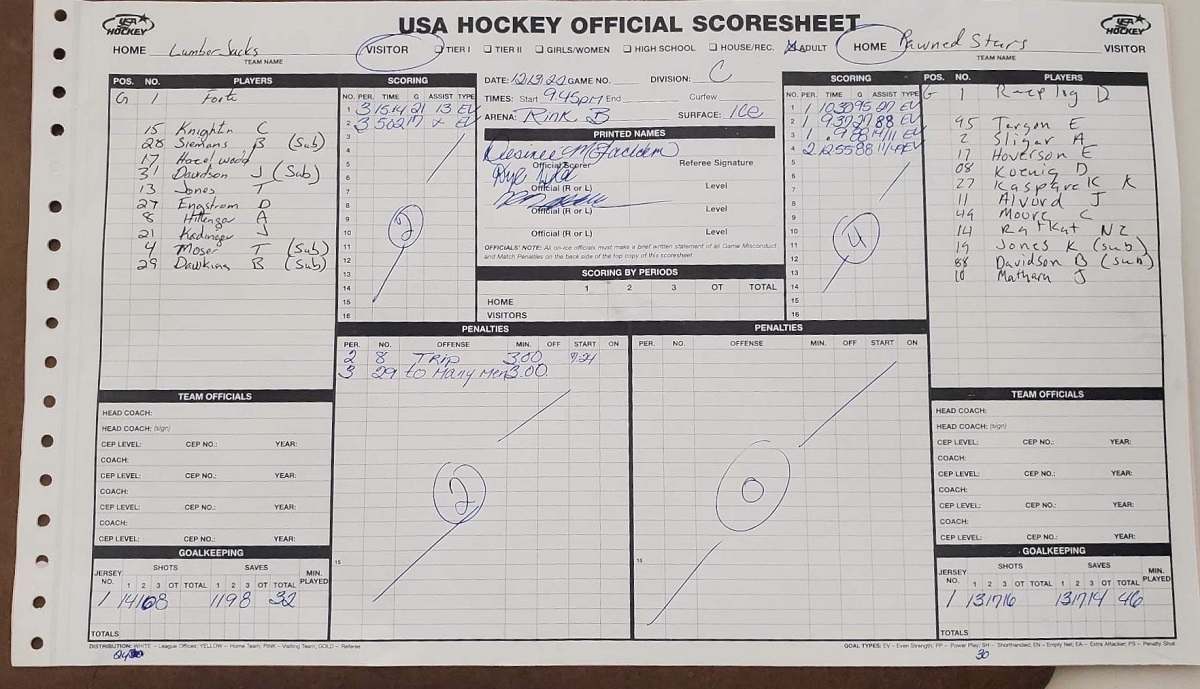 USA HOCKEY
USA HOCKEY OFFICIAL SCORESHEET
USA HOCKEY
HOME LumberJacks VISITOR
TEAM NAME
☐ TIER I ☐ TIER II ☐ GIRLS/WOMEN ☐ HIGH SCHOOL ☐ HOUSE/REC. ☒ ADULT
HOME Pawned Stars VISITOR
TEAM NAME
POS. NO. PLAYERS
G 1 Forte
15 Knightn C
28 Siemans B (Sub)
17 Hazelwood
31 Davidson J (Sub)
13 Jones T
27 Engstrom D
8 Hittenger A
21 Kadinger J
4 Moser T (Sub)
29 Dawkins B (Sub)
SCORING
NO. PER. TIME G ASSIST TYPE
1 3 1514 21 13 EV
2 3 502 17 x EV
3
4
5
6
7
8
9
10
11
12
13
14
15
16
2
DATE: GAME NO. DIVISION: C
TIMES: Start 9:45pm End Curfew
ARENA: Rink B SURFACE: Ice
PRINTED NAMES
Desiree
Official Scorer Referee Signature
Kyle
Official (R or L) Level
Official (R or L) Level
Official (R or L) Level
OFFICIALS' NOTE: All on-ice officials must make a brief written statement of all Game Misconduct
and Match Penalties on the back side of the top copy of this scoresheet.
SCORING BY PERIODS
1 2 3 OT TOTAL
HOME
VISITORS
SCORING
NO. PER. TIME G ASSIST TYPE
1 1 1030 95 27 EV
2 1 937 27 88 EV
3 1 .9 88 14/11 EV
4 2 1255 88 11/4 EV
5
6
7
8
9
10
11
12
13
14
15
16
4
POS. NO. PLAYERS
G 1 D
95 Targon E
2 Sligar A
17 Hoverson E
08 Koenig D
27 Kasparek K
11 Alvord J
49 Moure C
14 Ratkat NZ
19 Jones K (sub)
88 Davidson B (sub)
10 Matharu J
PENALTIES
PER. NO. OFFENSE MIN. OFF START ON
2 8 TRIP 3.00 9:24
3 29 to Many Men 3.00
2
15
PENALTIES
PER. NO. OFFENSE MIN. OFF START ON
0
15
TEAM OFFICIALS
HEAD COACH:
HEAD COACH: (sign)
CEP LEVEL: CEP NO.: YEAR:
COACH:
CEP LEVEL: CEP NO.: YEAR:
COACH:
CEP LEVEL: CEP NO.: YEAR:
COACH:
CEP LEVEL: CEP NO.: YEAR:
GOALKEEPING
JERSEY NO. SHOTS SAVES MIN. PLAYED
1 2 3 OT TOTAL 1 2 3 OT TOTAL
1 14 10 8 11 9 8 32
TOTALS
TEAM OFFICIALS
HEAD COACH:
HEAD COACH: (sign)
CEP LEVEL: CEP NO.: YEAR:
COACH:
CEP LEVEL: CEP NO.: YEAR:
COACH:
CEP LEVEL: CEP NO.: YEAR:
COACH:
CEP LEVEL: CEP NO.: YEAR:
GOALKEEPING
JERSEY NO. SHOTS SAVES MIN. PLAYED
1 2 3 OT TOTAL 1 2 3 OT TOTAL
1 13 17 16 13 17 14 46
TOTALS
DISTRIBUTION: WHITE – League Offices; YELLOW – Home Team; PINK – Visiting Team; GOLD – Referee
GOAL TYPES: EV – Even Strength; PP – Power Play; SH – Shorthanded; EN – Empty Net; EA – Extra Attacker; PS – Penalty Shot
30